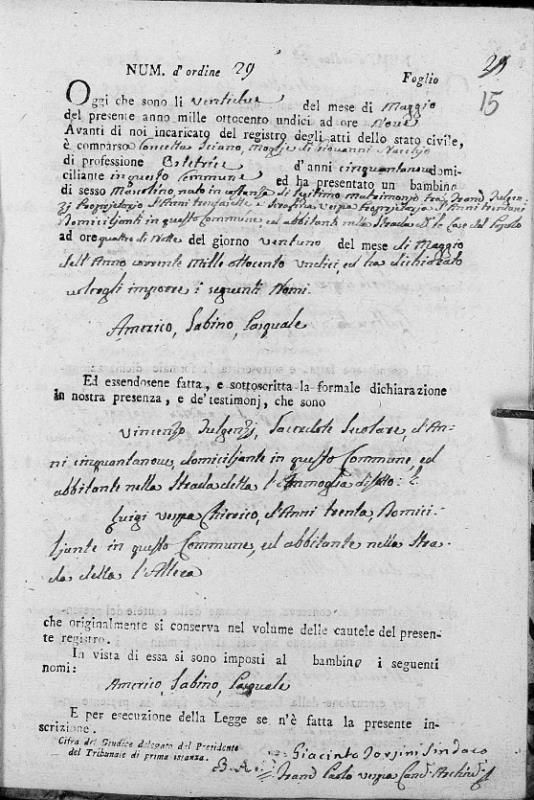 NUM. d'ordine 29
Foglio
29
15
Oggi che sono li ventidue del mese di Maggio
del presente anno mille ottocento undici ad ore Nove
Avanti di noi incaricato del registro degli atti dello stato civile,
è comparso Concetta Sciano, Moglie di Giovanni
di professione Ostetrice d'anni cinquantanove domi-
ciliante in questo Commune ed ha presentato un bambino
di sesso Mascolino, nato in costanza di legitimo matrimonio tra Grand. Fulgen-
zj Proprietario d'Anni trentasette e Serafina Vespa Proprietaria d'Anni
Domiciljanti in questo Commune, ed abbitanti nella Strada
ad ore quattro di Notte del giorno ventuno del mese di Maggio
dell'Anno corrente Mille ottocento Undici, ed ha dichiarato
volergli imporre i seguenti Nomi.
Americo, Sabino, Pasquale
Ed essendosene fatta, e sottoscritta la formale dichiarazione
in nostra presenza, e de' testimonj, che sono
Vincenzo Fulgenzj, Sacerdote Secolare, d'An-
ni cinquantanove, domiciljante in questo Commune, ed
abbitante nella Strada detta
Luigi Vespa Chierico, d'Anni trenta, Domici-
ljante in questo Commune, ed abbitante nella Stra-
da detta l'Altera
che originalmente si conserva nel volume delle cautele del presen-
te registro.
In vista di essa si sono imposti al bambino i seguenti
nomi:
Americo, Sabino, Pasquale
E per esecuzione della Legge se n'è fatta la presente in-
scrizione.
Cifra del Giudice delegato del Presidente
del Tribunale di prima istanza.
Giacinto Sindaco
Paolo Vespa